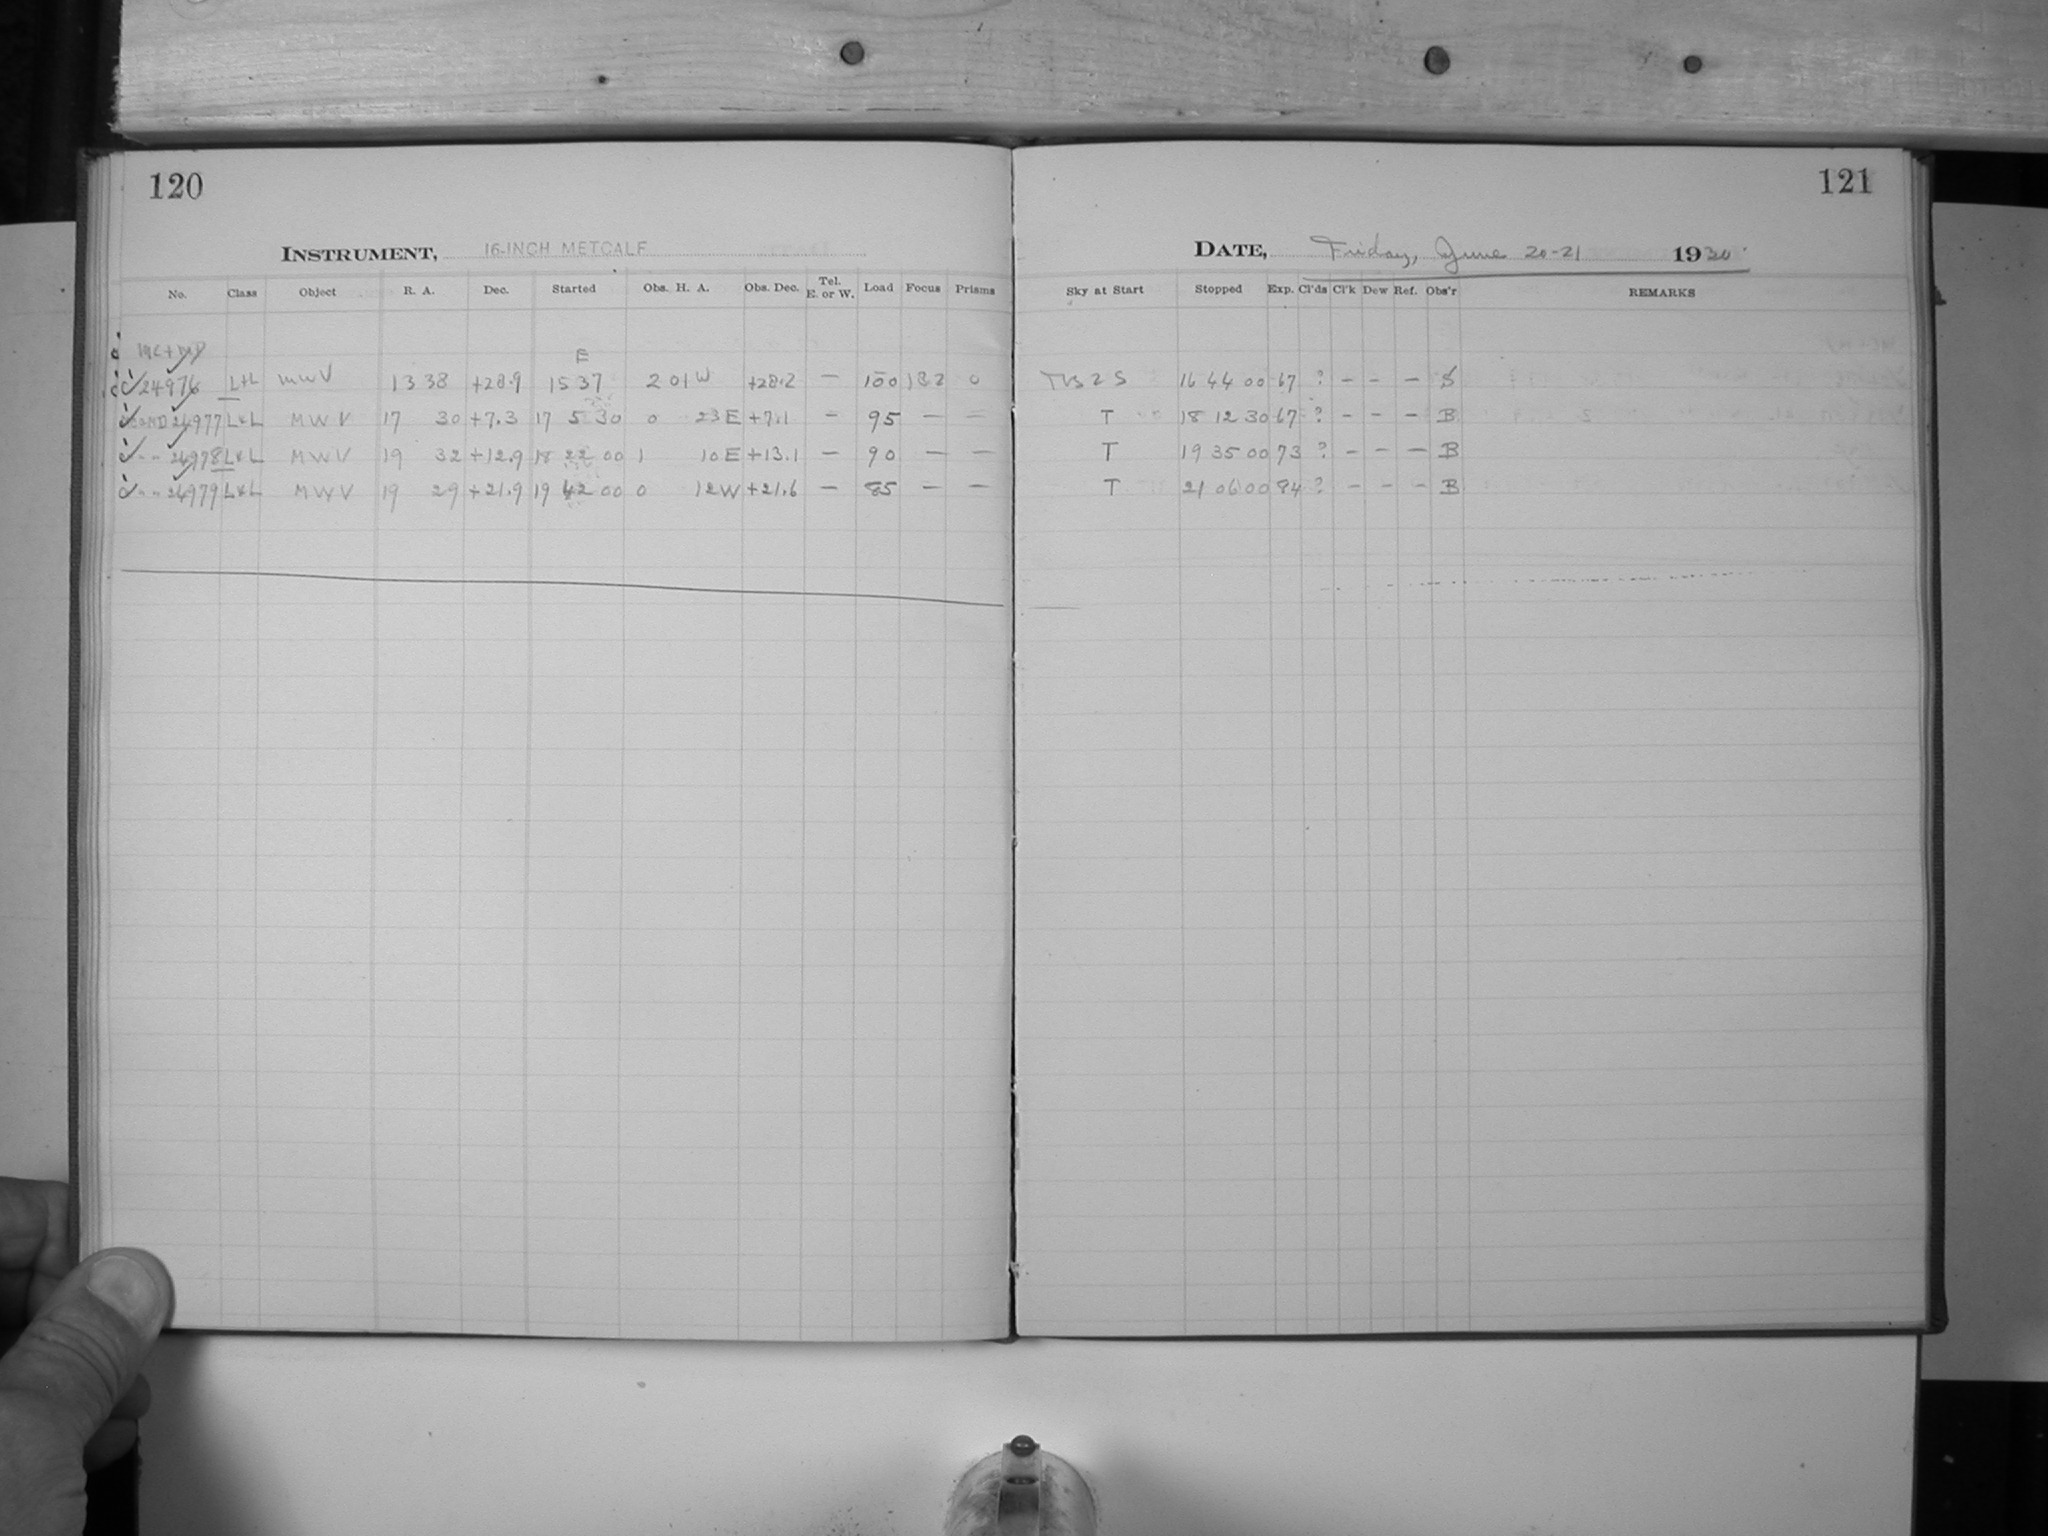 120
INSTRUMENT, 16-INCH METCALF
No. Class Object R. A. Dec. Started Obs. H. A. Obs. Dec. Tel. E. or W. Load Focus Prisms
MC+MD E
24976 L+L MWV 13 38 +28.9 15 37 2 01 W +28.2 — 100 18.2 0
24977 L&L MWV 17 30 +7.3 17 5 30 0 23 E +7.1 — 95 — —
" " 24978 L&L MWV 19 32 +12.9 18 22 00 1 10 E +13.1 — 90 — —
" " 24979 L&L MWV 19 29 +21.9 19 42 00 0 12 W +21.6 — 85 — —
121
DATE, Friday, June 20-21 1930
Sky at Start Stopped Exp. Cl'ds Cl'k Dew Ref. Obs'r REMARKS
16 44 00 67 ? — — — S
T 18 12 30 67 ? — — — B
T 19 35 00 73 ? — — — B
T 21 06 00 84 ? — — — B